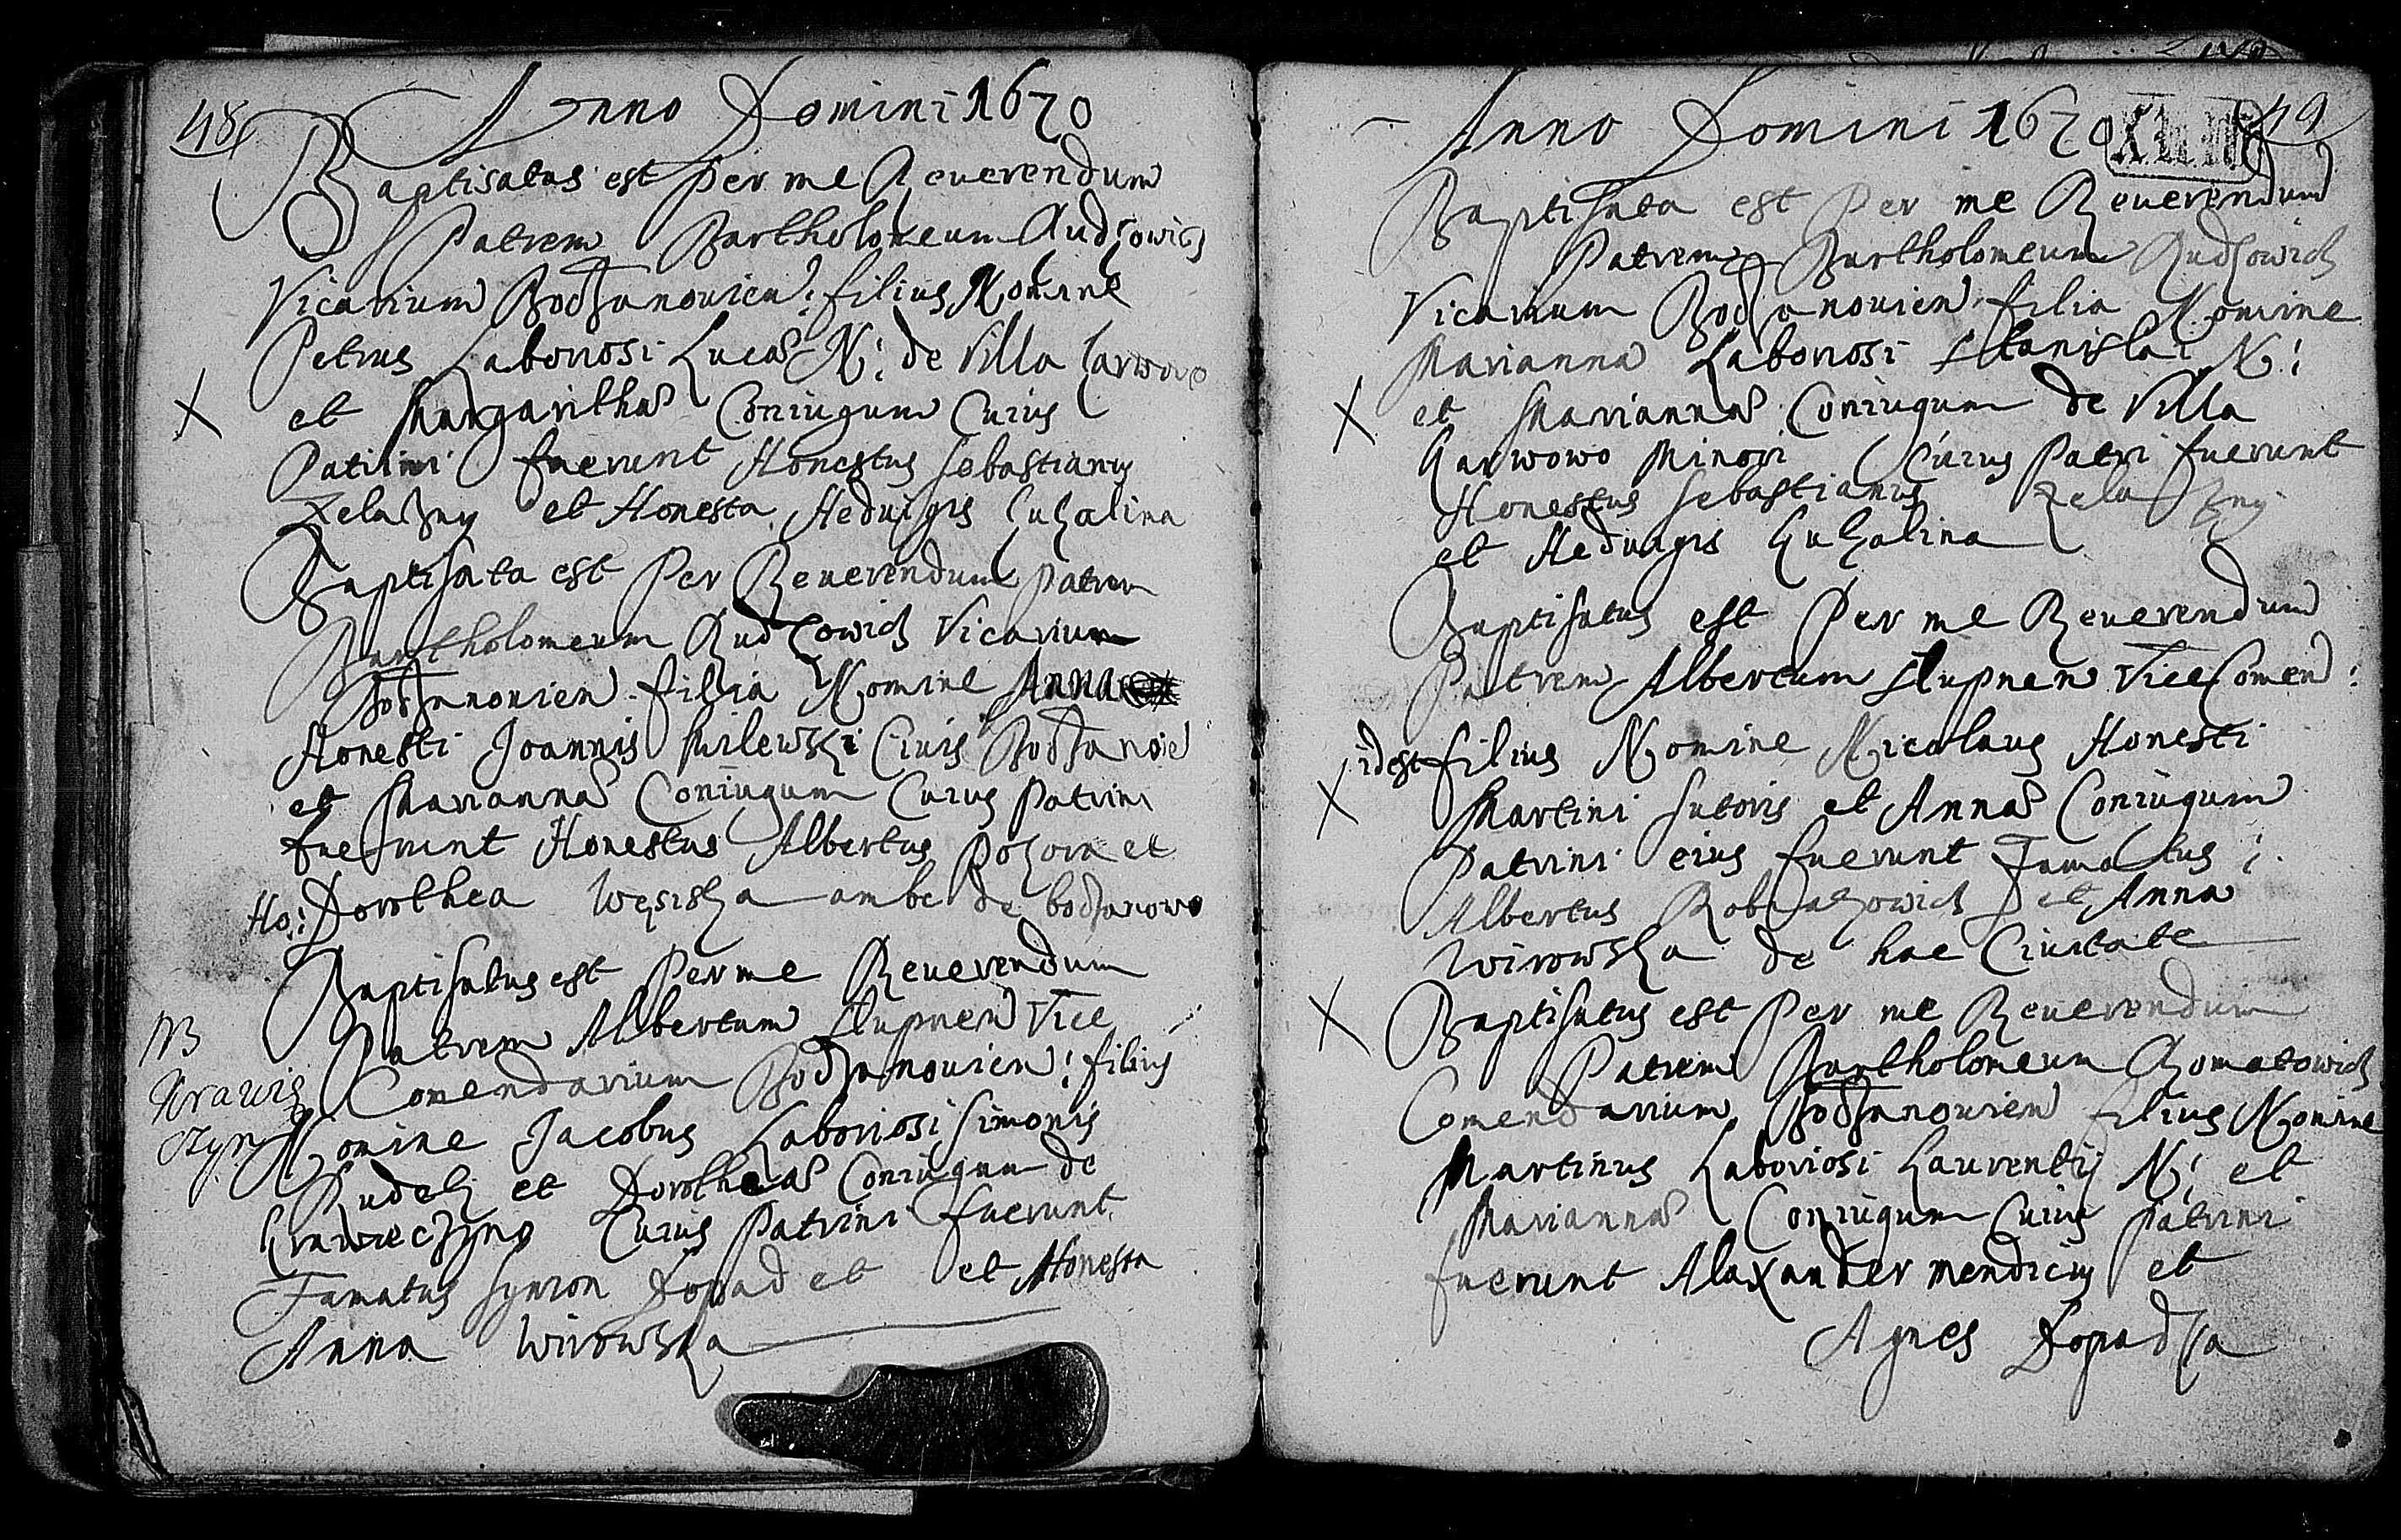 48
Anno Domini 1670
Baptisatus est per me Reuerendum
Patrem Bartholomeum Rudkowicz
Vicarium Bodzanouien: filius Nomine
Petrus Laboriosi Lucae N: de Villa
et Margarithae Coniugum Cuius
Patrini fuerunt Honestus Sebastianus
Zelaszny et Honesta Heduigis Kukalina
Baptisata est Per Reuerendum Patrem
Bartholomeum Rudkowicz Vicarium
Bodzanouien filia Nomine Anna
Honesti Joannis Ciuis
et Mariannae Coniugum Cuius Patrini
fuerunt Honestus Albertus et
Ho: Dorothea ambo de bodzanowo
Baptisatus est Per me Reuerendum
Patrem Albertum Slupnen Vice
NB
Comendarium Bodzanouien: filius
Nomine Jacobus Laboriosi Simonis
et Dorotheae Coniugum de
Cuius Patrini fuerunt
Famatus Symon et Honesta
Anna Wirowska
49
Anno Domini 1670
Baptisata est Per me Reuerendum
Patrem Bartholomeum Rudkowicz
Vicarium Bodzanouien filia Nomine
Marianna Laboriosi Stanislai N:
et Mariannae Coniugum de Villa
Garwowo Minori Cuius Patri fuerunt
Honestus Sebastianus Zelaszny
et Heduigis Kukalina
Baptisatus est Per me Reuerendum
Patrem Albertum Slupnen ViceComen:
idest filius Nomine Nicolaus Honesti
Martini Sutoris et Annae Coniugum
Patrini eius fuerunt Famatus
Albertus et Anna
Wirowska de hac Ciuitate
Baptisatus est Per me Reuerendum
Patrem Bartholomeum
Comendarium Bodzanouien filius Nomine
Martinus Laboriosi Laurentij N: et
Mariannae Coniugum Cuius patrini
fuerunt Alaxander mendicus et
Agnes